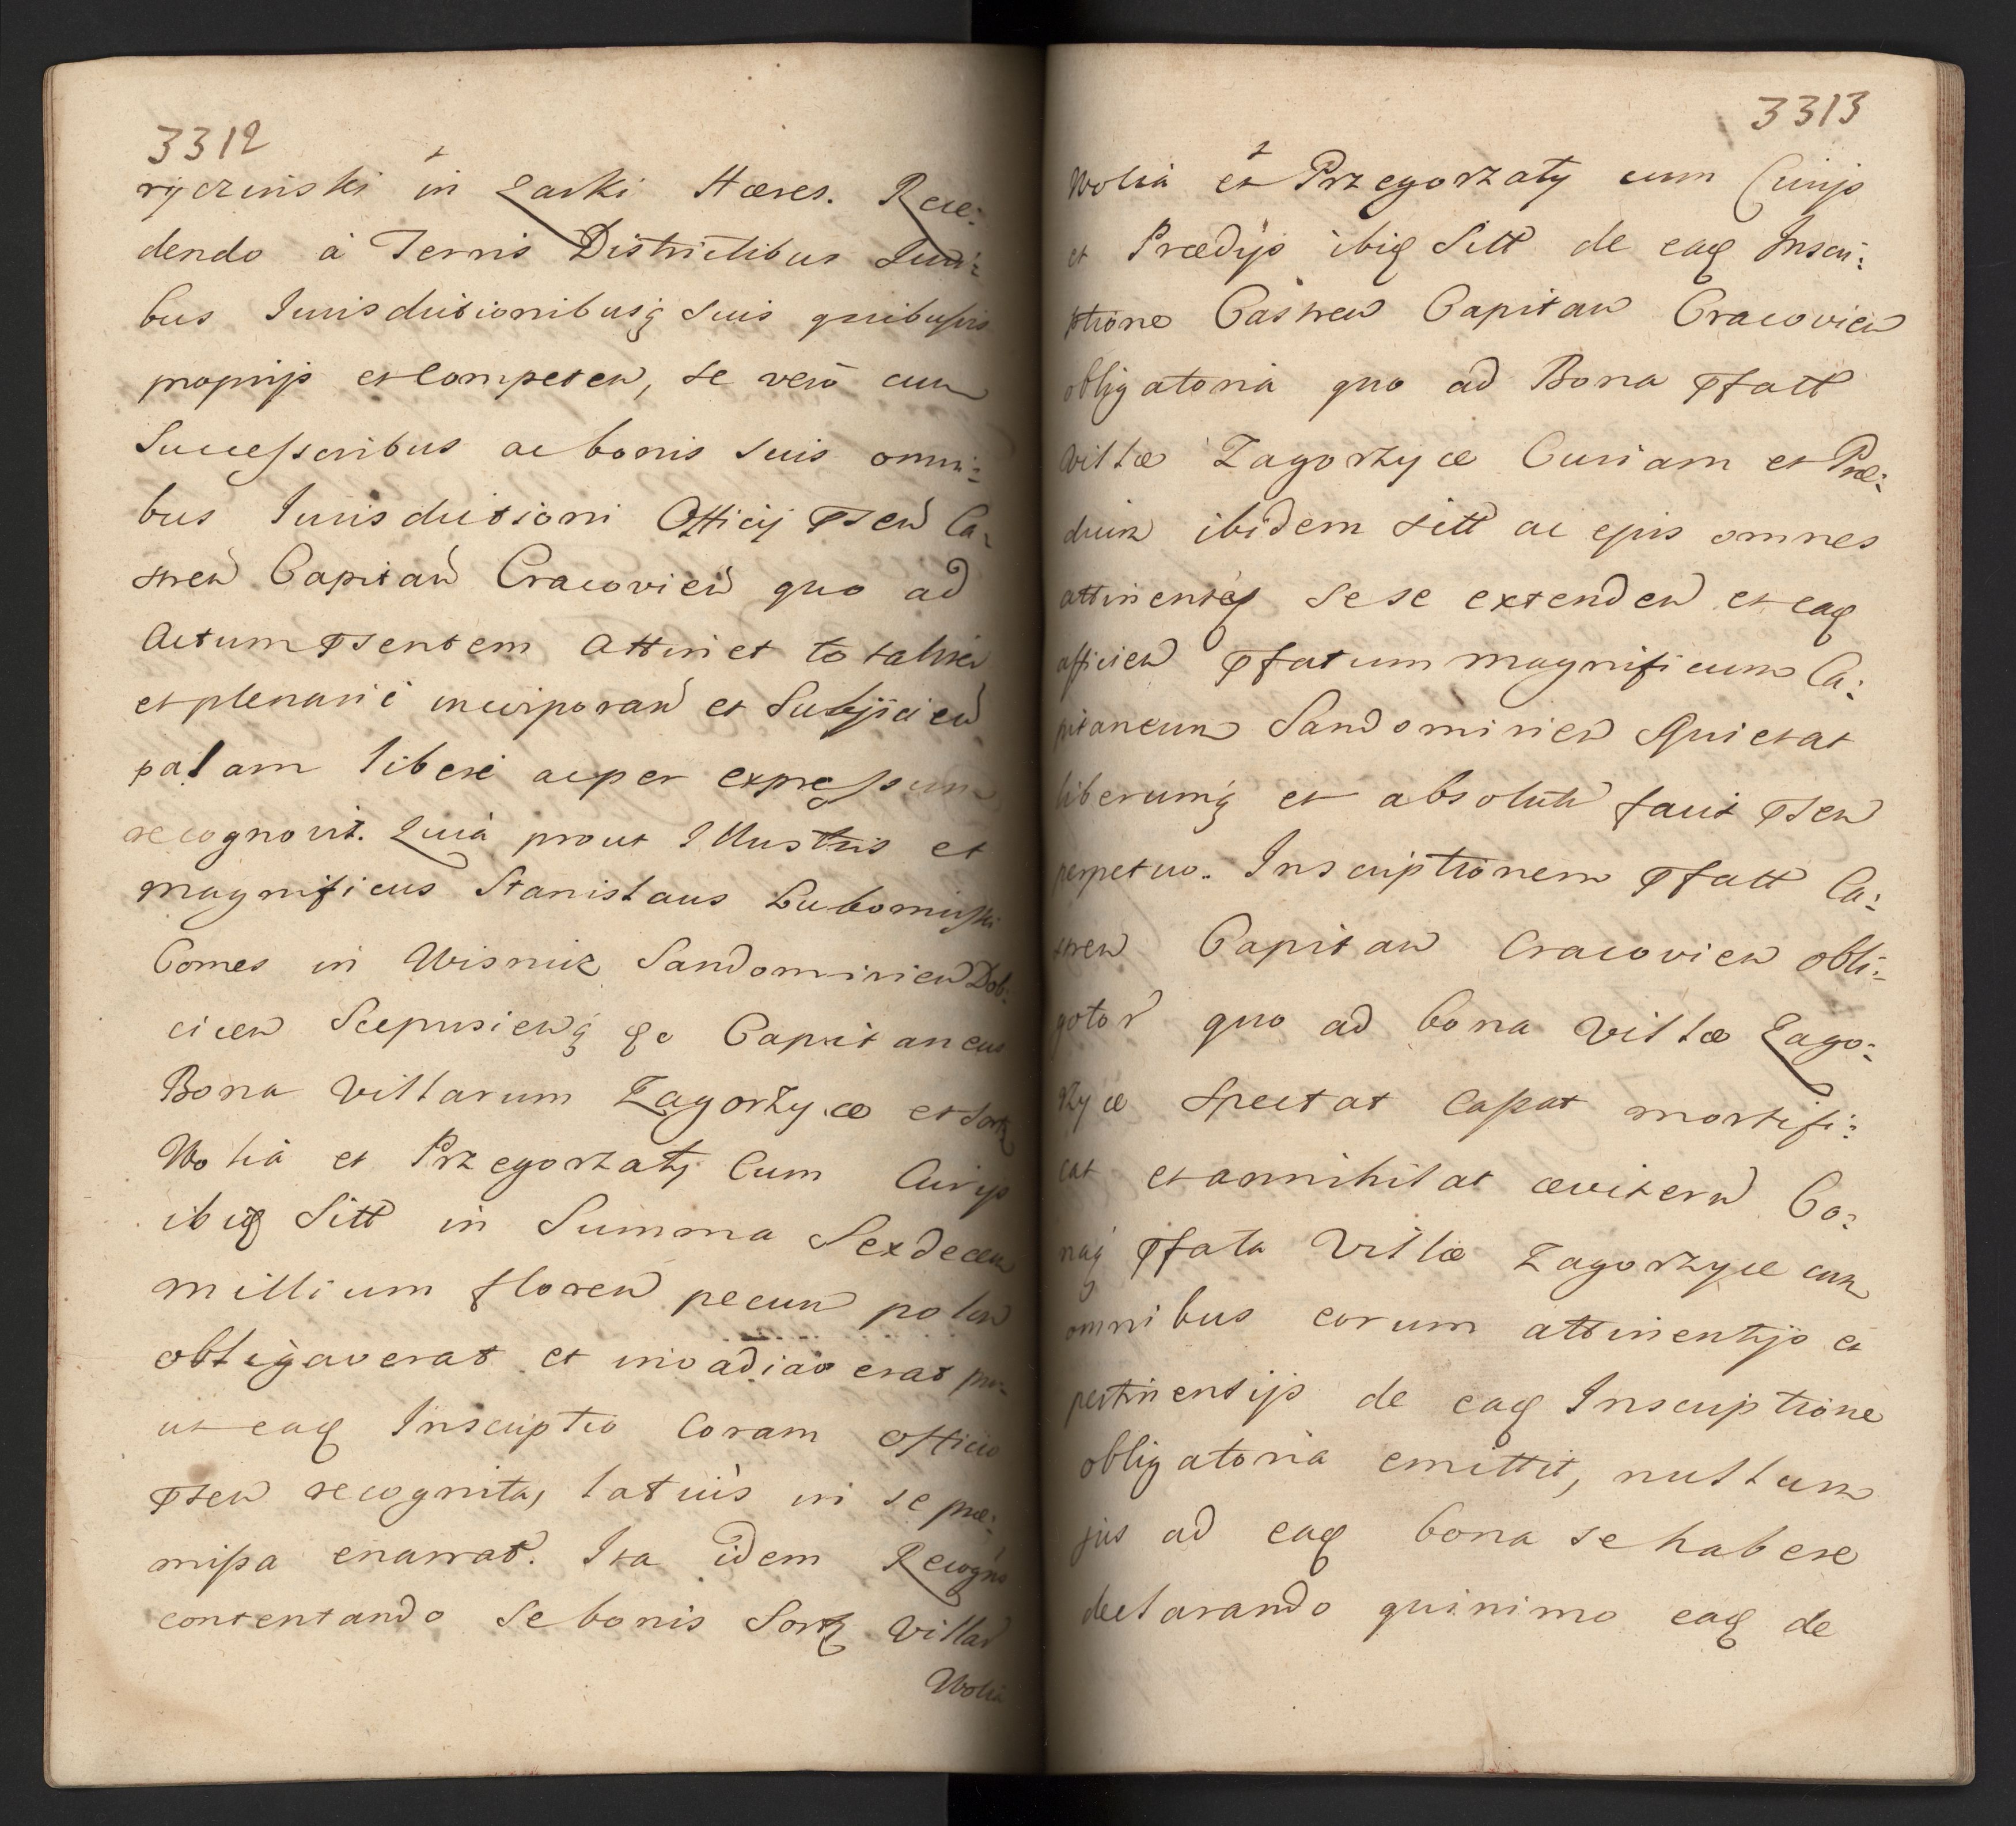 3312
ryczinski in Zarki Hæres. Rece:
dendo à Terris Districtibus Judi:
bus Jurisdictionibusq suis quibusvis
proprijs et Competen, se verò cum
Successoribus ac bonis suis omni:
bus Jurisdictioni Officij Psen Ca:
stren Capitan Cracovien quo ad
Actum Psentem attinet totaliter
et plenariè incorporan et Subjicien
palam liberè ac per expressum
recognovit. Quià prout Illustris et
magnificus Stanislaus Lubomirski
Comes in Wisnicz Sandomirien Dob:
cicen Scepusienq &c Capitaneus
Bona Villarum Zagorzyce et Sortz
Wolià et Przegorzaty Cum Curijs
ibiq Sitt in Summa Sexdecem
millium floren pecun polon
obligaverat et invadiaverat pro:
ut eaq Inscriptio Coram officio
Psen recognita, latiùs in se præ:
missa enarrat. Ita idem Recogns
contentando se bonis Sortz Villar
Wolia
3313
Wolià et Przegorzaty cum Curijs
et Prædijs ibiq Sitt de eaq Inscri:
ptione Castren Capitan Cracovien
obligatoria quo ad Bona Pfatt
Villæ Zagorzyce Curiam et Præ:
dium ibidem sitt ac ejus omnes
attinentq sese extenden et eaq
afficien Pfatum magnificum Ca:
pitaneum Sandomirien Quietat
liberumq et absolutu facit Psen
perpetuo. Inscriptionem Pfatt Ca:
stren Capitan Cracovien obli:
gator quo ad bona Villæ Zago:
rzyce Spectat Cassat mortifi:
cat et annihilat ævitern Bo:
naq Pfata Villæ Zagorzyce cum
omnibus eorum attinentijs et
pertinentijs de eaq Inscriptione
obligatoria emittit, nullum
jus ad eaq bona se habere
declarando quinimo eaq de